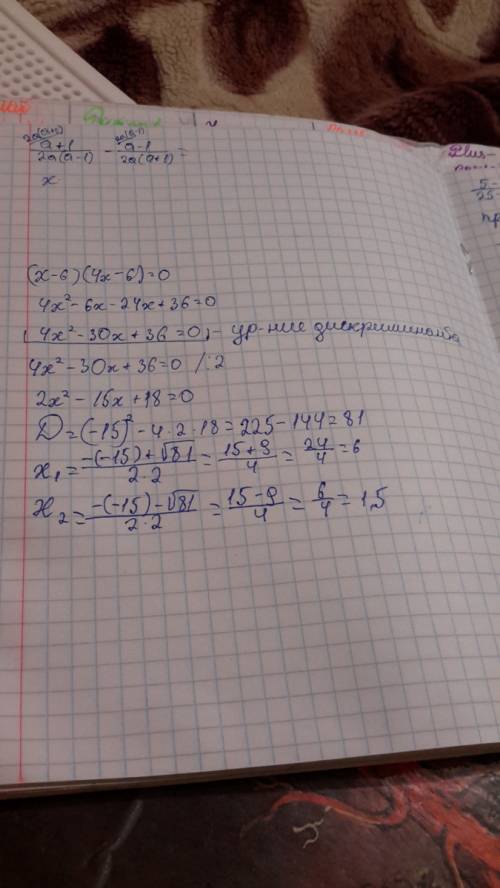 2a(a+1) 2a(a-1)
(a+1)/(2a(a-1)) - (a-1)/(2a(a+1)) =
x
(x-6)(4x-6)=0
4x²-6x-24x+36=0
(4x²-30x+36=0) - ур-ние дискриминанта
4x²-30x+36=0 /:2
2x²-15x+18=0
D=(-15)²-4·2·18=225-144=81
x₁=(-(-15)+√81)/(2·2)=(15+9)/4=24/4=6
x₂=(-(-15)-√81)/(2·2)=(15-9)/4=6/4=1,5
Plus-